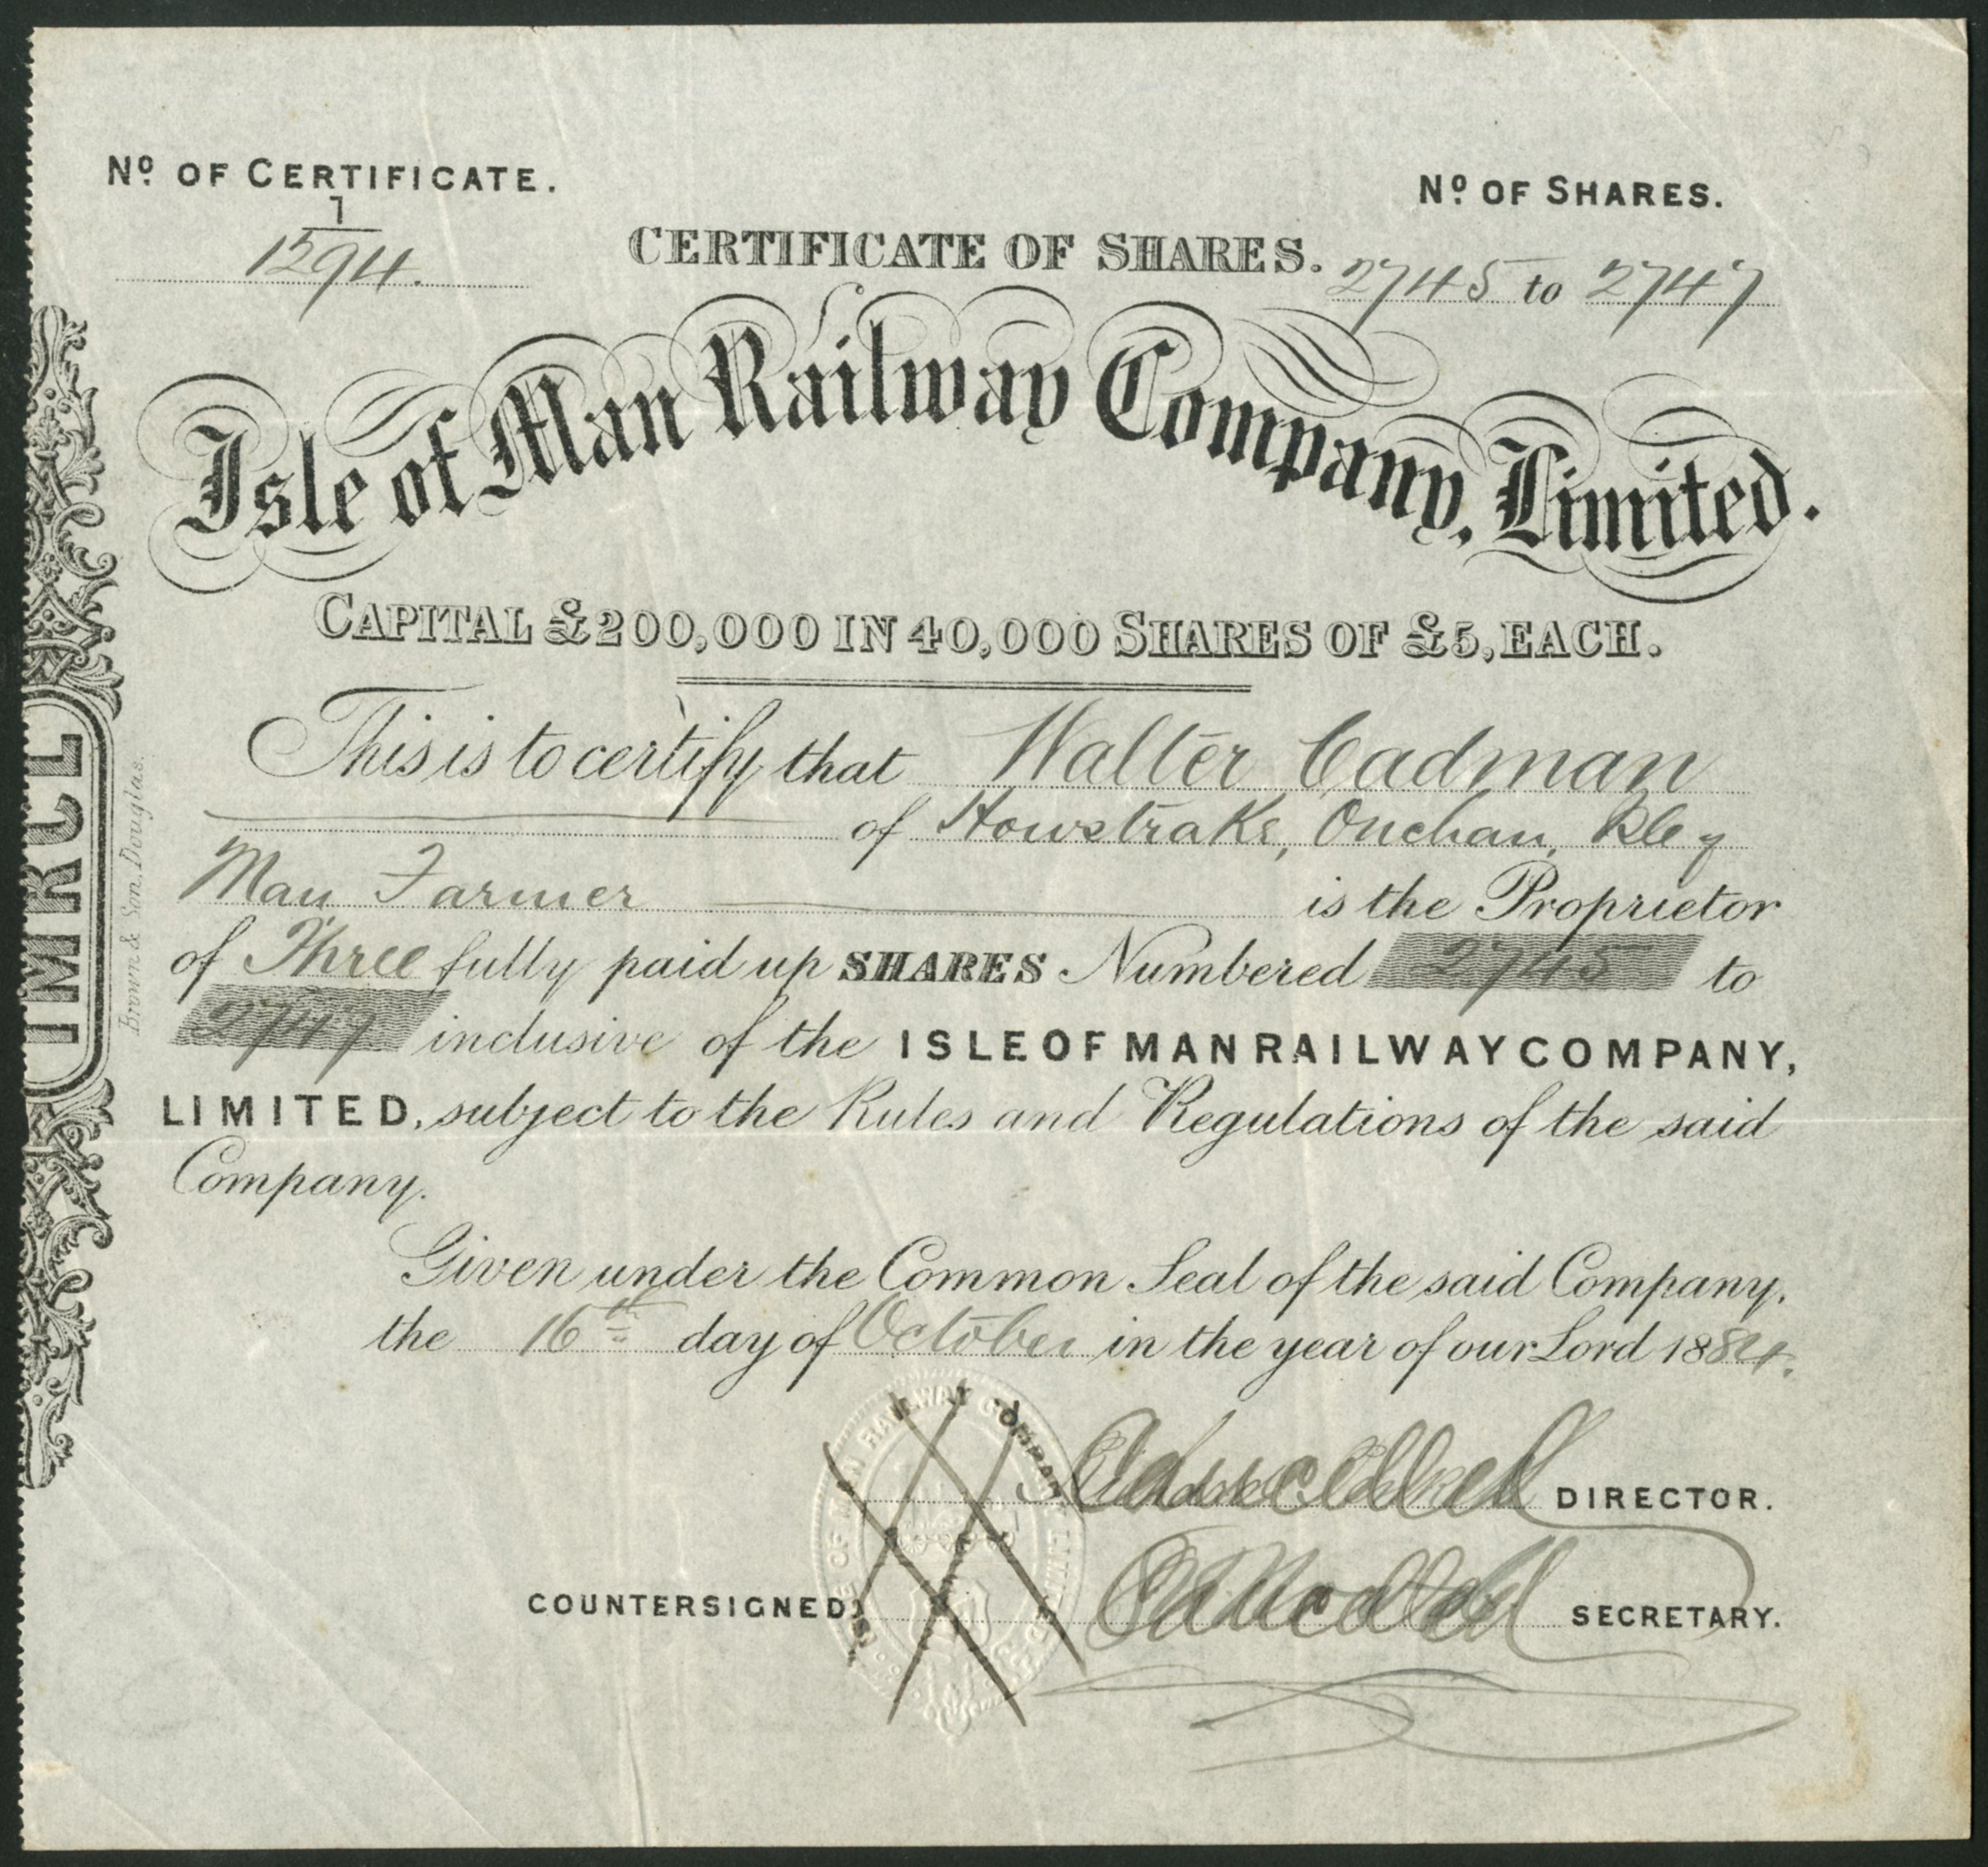 Nº OF CERTIFICATE.
1
1594.
Nº OF SHARES.
CERTIFICATE OF SHARES.
2745 to 2747
Isle of Man Railway Company, Limited.
CAPITAL £200,000 IN 40,000 SHARES OF £5, EACH.
This is to certify that Walter Cadman
of Howstrake, Onchan, Isle of
Man Farmer is the Proprietor
of Three fully paid up SHARES Numbered 2745 to
2747 inclusive of the ISLE OF MAN RAILWAY COMPANY,
LIMITED, subject to the Rules and Regulations of the said
Company.
Given under the Common Seal of the said Company,
the 16th day of October in the year of our Lord 1884.
DIRECTOR.
COUNTERSIGNED,
SECRETARY.
ISLE OF MAN RAILWAY COMPANY LIMITED
IMRCL
Brown & Son, Douglas.